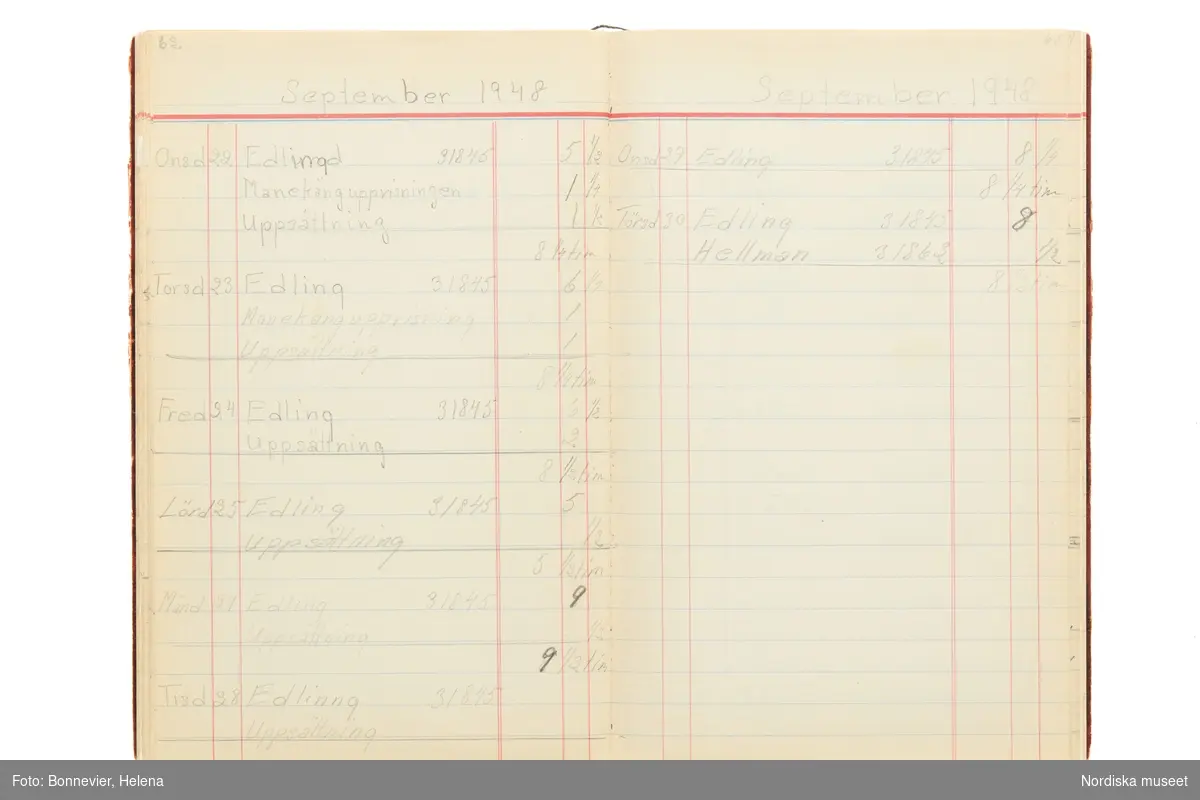 62
September 1948
Onsd 22 Edlingd 31845 5 1/2
Manekänguppvisningen 1 1/4
Uppsättning 1 1/2
8 1/4 tim
Torsd 23 Edling 31845 6 1/4
Manekänguppvisning 1
Uppsättning 1
8 1/4 tim
Fred 24 Edling 31845 6 1/2
Uppsättning 2
8 1/2 tim
Lörd 25 Edling 31845 5
Uppsättning 1/2
5 1/2 tim
Månd 27 Edling 31845 9
Uppsättning 1/2
9 1/2 tim
Tisd 28 Edlinng 31845
Uppsättning
September 1948
Onsd 29 Edling 31845 8 1/4
8 1/4 tim
Torsd 30 Edling 31845 8
Hellman 31862 1/2
8 tim
Foto: Bonnevier, Helena
Nordiska museet